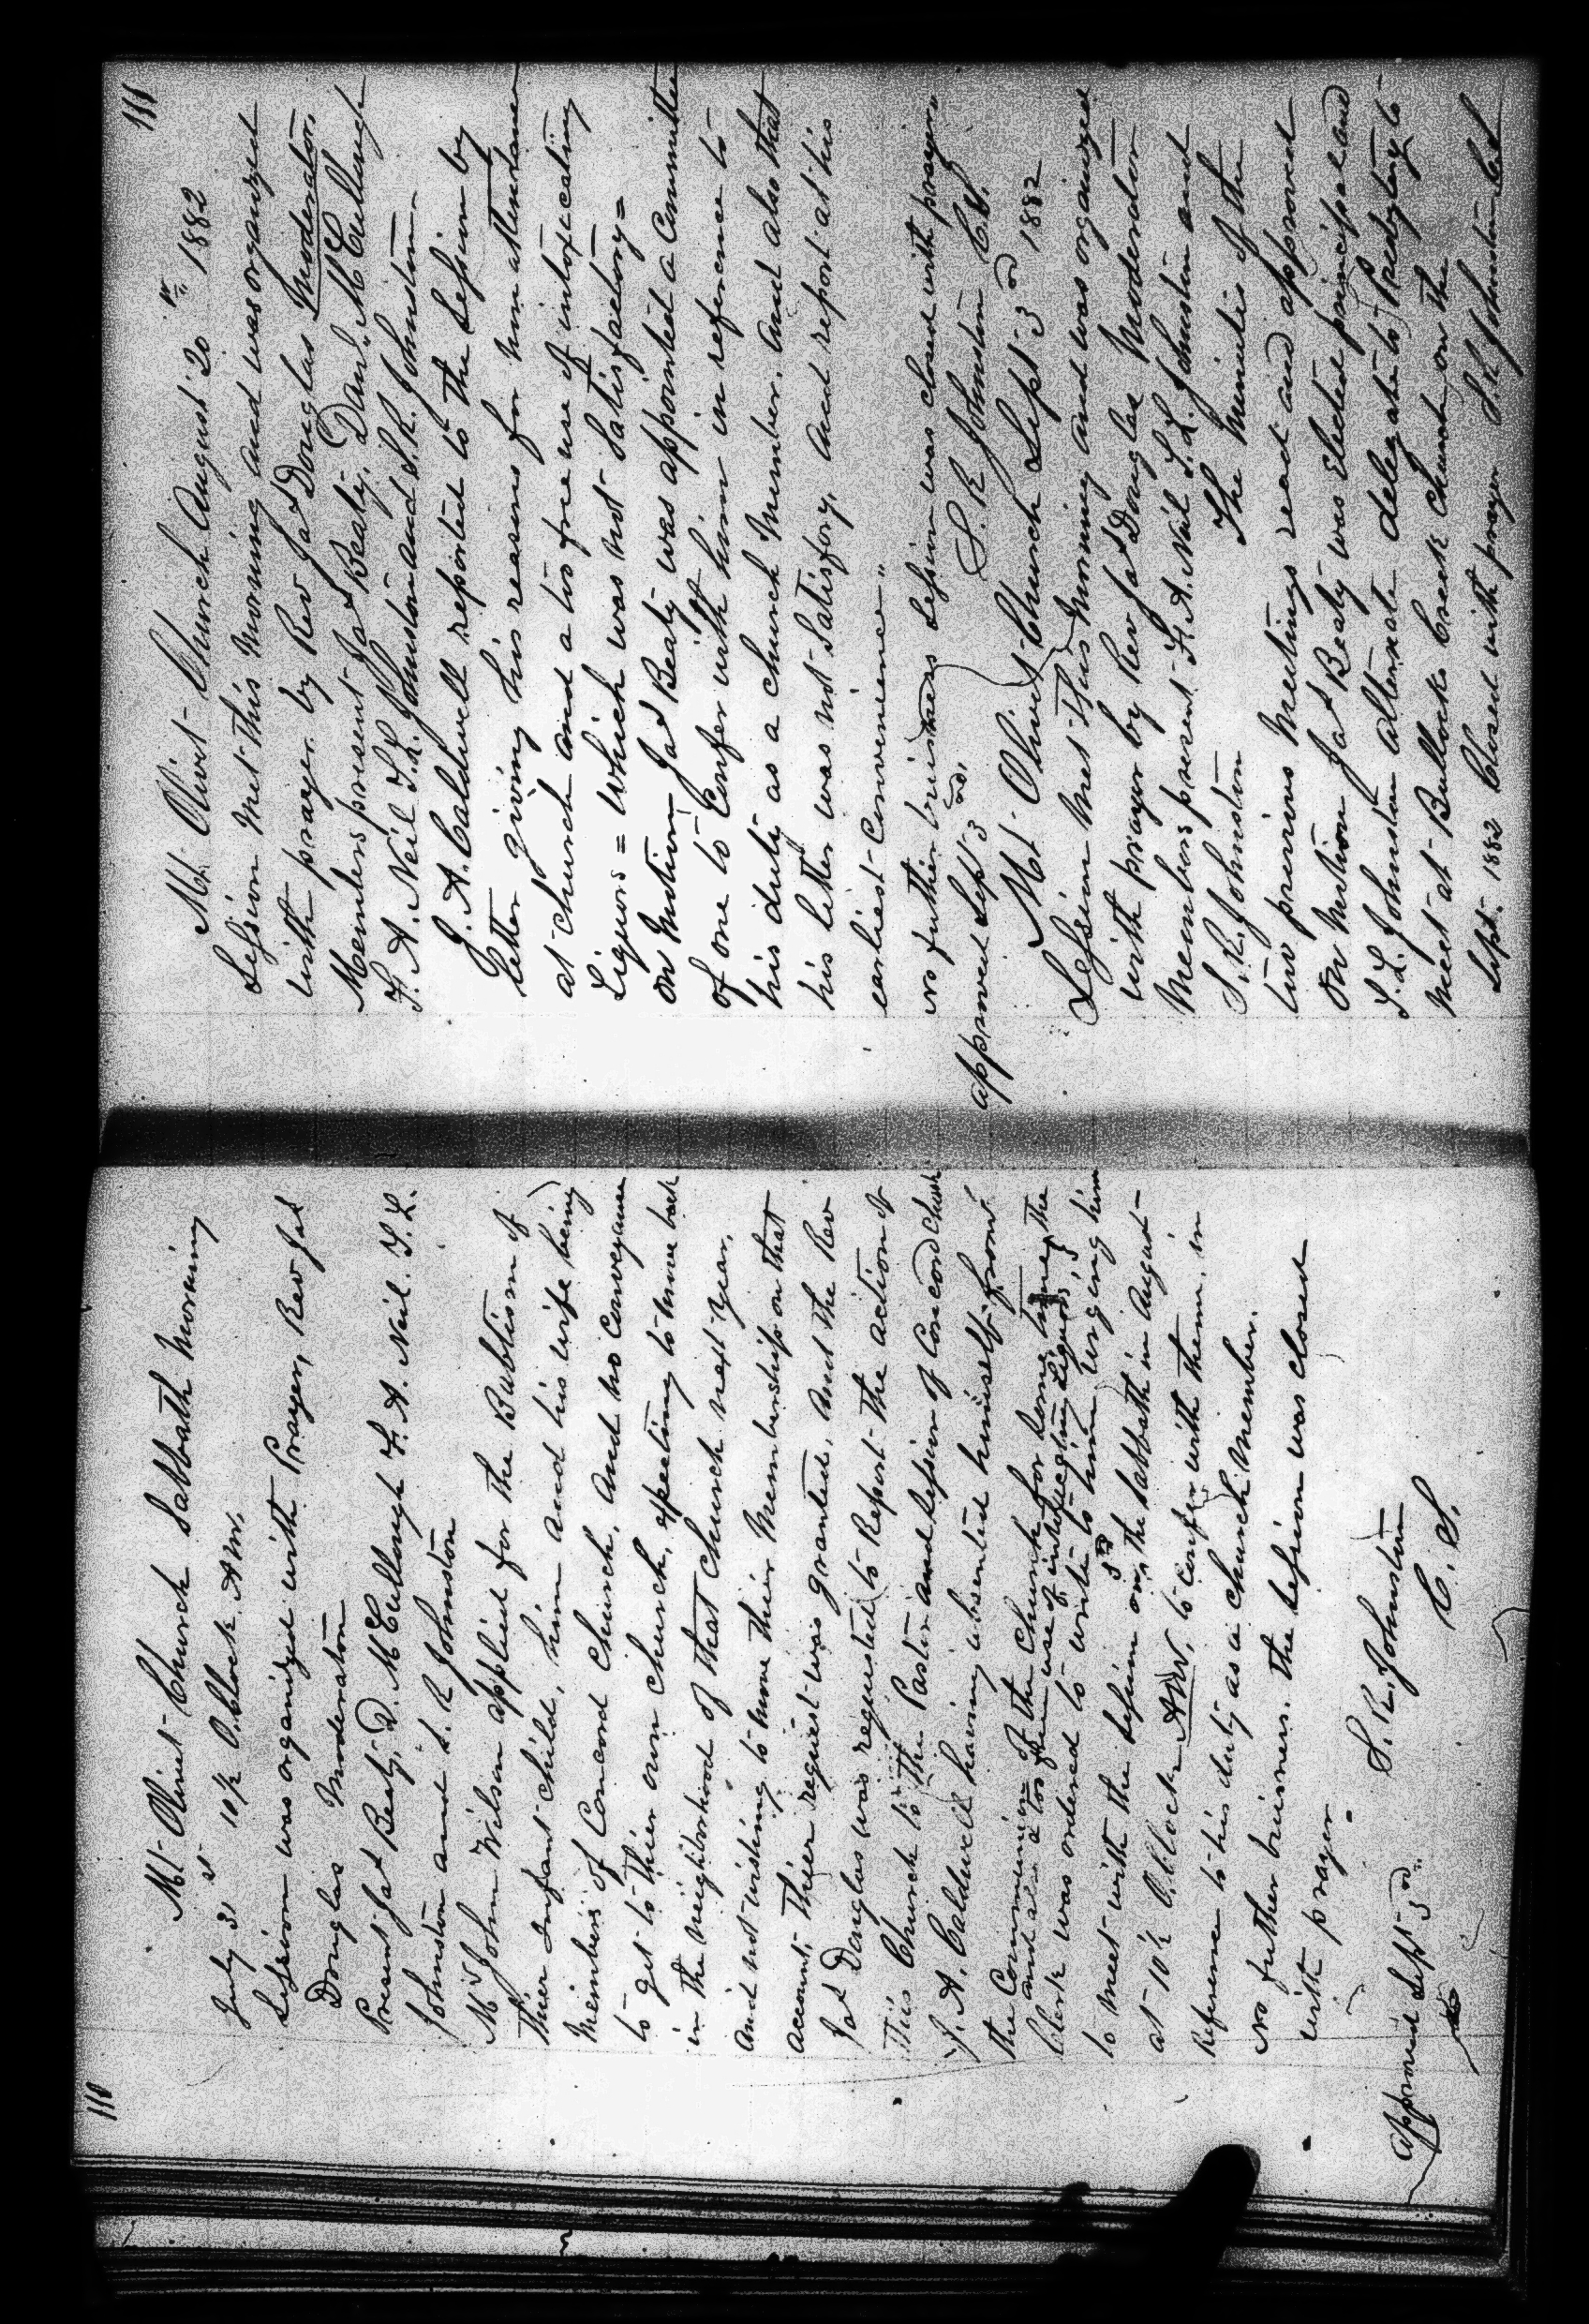 110
Mt Olivet Church Sabbath Morning
July 31st 10½ O.Clock A.M.
Session was organized with Prayer, Rev Jas
Douglas Moderator
Present Jas Beaty, D. McCullough F. A. Neil. S. L.
Johnston and S. R Johnston
Mr John Wilson applied for the Babtism of
Thier Infant child, him and his wife being
Members of Concord Church, And no Conveyance
to get to thier own church, expecting to move back
in the neighborhood of that church next year,
and not wishing to move thier Membership on that
account, thier request was granted, and the Rev
Jas Douglas was requested to Report the action of
This Church to the Pastor and Session of Concord Church
J. A. Caldwell having absented himself from
the Communion of the Church for some time, the
and also a too free use of intoxicating Liquors,
Clerk was ordered to write to him urging him
to meet with the Session on the 3rd Sabbath in August
at 10½ O.Clock A.M. to confer with them, in
Reference to his duty as a church Member.
No futher buisness. the Session was closed
with prayer
S. R. Johnston
C. S.
Approved Sept 3rd
111
Mt. Olivet Church August 20th 1882
Session Met this Morning and was organized
with prayer. by Rev Jas Douglas Moderator,
Members present Jas Beaty, Danl McCullough
F. A. Neil S. L. Johnston and S. R. Johnston
J. A. Caldwell reported to the Session by
letter giving his reasons for non attendance
at church and a too free use of intoxicating
Liquors = Which was not Satisfactory =
On Motion Jas Beaty was appointed a Committee
of one to Confer with him in reference to
his duty as a church Member. And also that
his letter was not Satisfory, And report at his
earliest Convenience"
No futher buisness Session was closed with prayer
S. R Johnston C.S.
approved Sept 3rd,
Mt Olivet Church Sept 3rd 1882
Session Met this Morning and was organized
with prayer by Rev Jas Douglas Moderator
Members present F. A. Neil S. L. Johnston and
S. R. Johnston The Minutes of the
two previous Meetings read and approved
On Motion Jas Beaty was Elected principal and
S. L. Johnston Alternate delegate to Presbytery to
Meet at Bullocks Creek Church on the
Sept. 1882 Closed with prayer S. R Johnston C.S